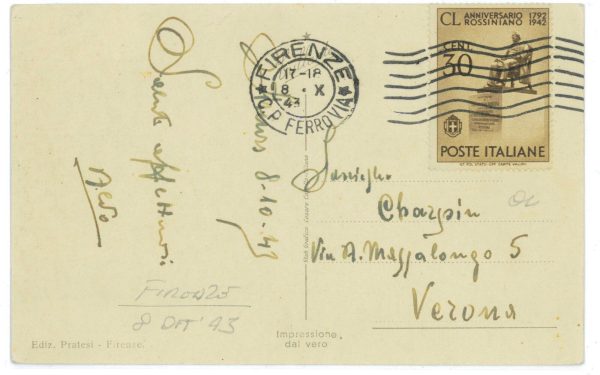 CL ANNIVERSARIO 1792
ROSSINIANO 1942
CENT
30
POSTE ITALIANE
FIRENZE
17-18
8 · X
43
C.P. FERROVIA
8-10-43
Saluti affettuosi
Famiglia
Chargin
Via A. Massalongo 5
Verona
Firenze
8 OTT '43
Ediz. Pratesi - Firenze.
Impressione
dal vero